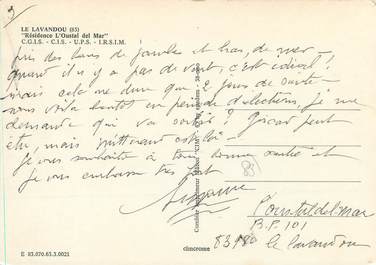 3
LE LAVANDOU (83)
"Résidence L'Oustal del Mar"
C.G.I.S. - C.I.S. - U.P.S. - I.R.S.I.M.
pris des bains de jambes et bras, de mer -
quand il y a pas de vent, c'est idéal!
mais cela ne dure que 2 jours de suite
nous voila bientôt en période d'élections, je me
demande qui va sortir? Giscard peut
être, mais Mitterand est là -
Je vous souhaite à tous bonne santé et
Je vous embrasse très fort
Suzanne
83
l'oustal del mar
B.P. 101
83980 le lavandou
E 83.070.63.3.0021
cimcrome